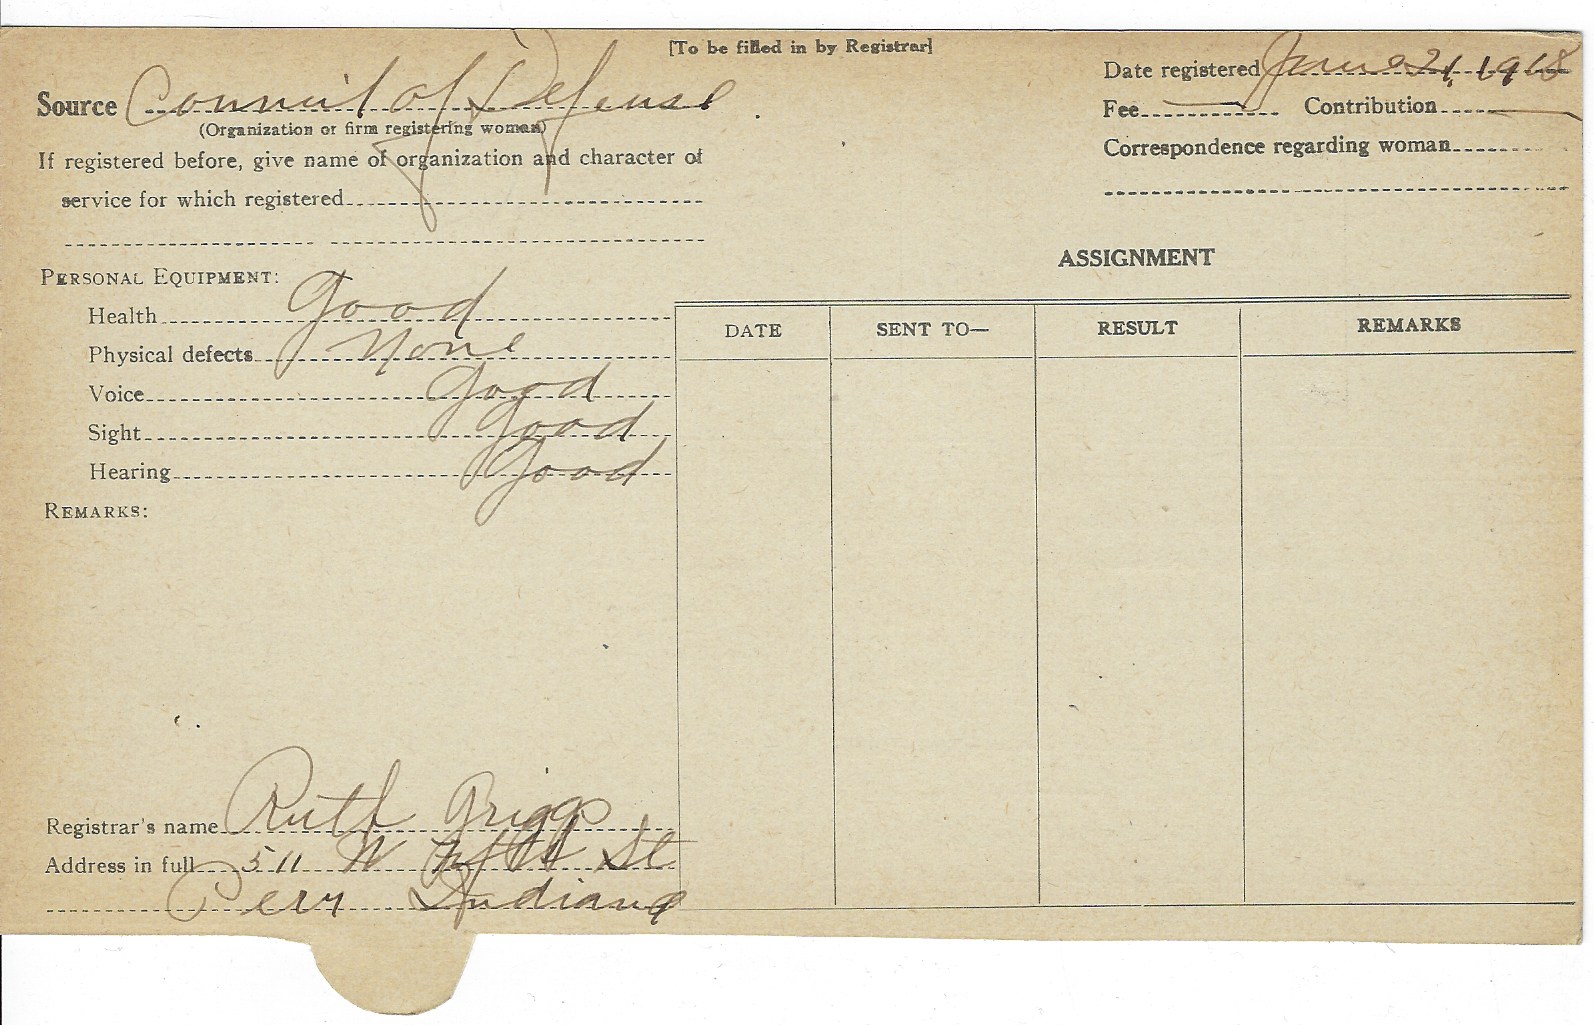 [To be filled in by Registrar]
Source Council of Defense
(Organization or firm registering woman)
If registered before, give name of organization and character of
service for which registered
Date registered June 21, 1918
Fee Contribution
Correspondence regarding woman
PERSONAL EQUIPMENT:
Health Good
Physical defects None
Voice Good
Sight Good
Hearing Good
REMARKS:
ASSIGNMENT
DATE SENT TO— RESULT REMARKS
Registrar's name Ruth Griggs
Address in full 511 W St
Peru Indiana